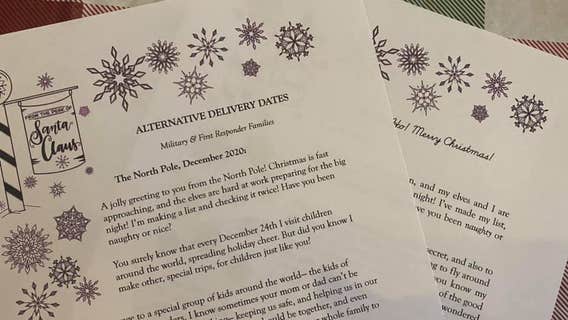 FROM THE DESK OF
Santa
Claus
ALTERNATIVE DELIVERY DATES
Military & First Responder Families
The North Pole, December 2020:
A jolly greeting to you from the North Pole! Christmas is fast
approaching, and the elves are hard at work preparing for the big
night! I'm making a list and checking it twice! Have you been
naughty or nice?
You surely know that every December 24th I visit children
around the world, spreading holiday cheer. But did you know I
make other, special trips, for children just like you?
to a special group of kids around the world– the kids of
I know sometimes your mom or dad can't be
keeping us safe, and helping us in our
could be together, and even
whole family to
Ho! Merry Christmas!
and my elves and I are
night! I've made my list,
you been naughty or
secret, and also to
to fly around
you know my
of the good